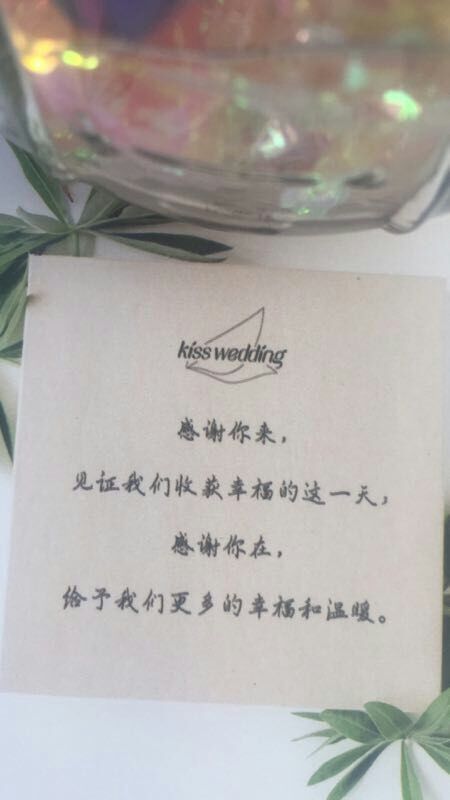 kiss wedding
感谢你来，
见证我们收获幸福的这一天，
感谢你在，
给予我们更多的幸福和温暖。